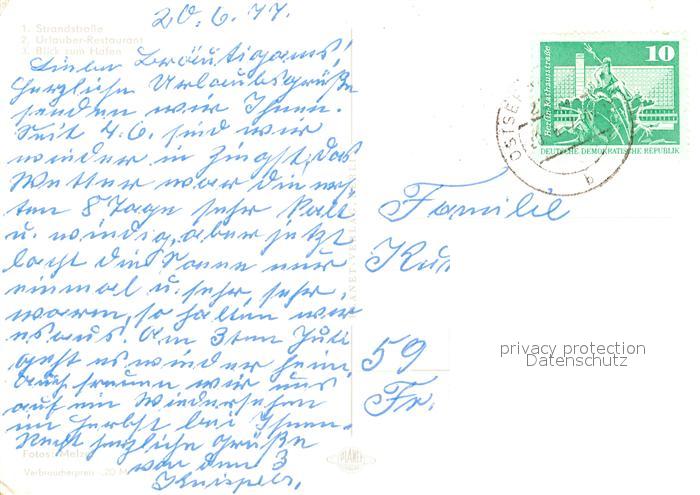 20.6.77.
1. Strandstraße
2. Urlauber-Restaurant
3. Blick zum Hafen
Liebe Bräutigams!
Herzliche Urlaubsgrüße
senden wir Ihnen.
Seit 4.6. sind wir
wieder in Zingst, das
Wetter war die ers-
ten 8 Tage sehr kalt
u. windig, aber jetzt
lacht die Sonne nur
einmal u. sehr, sehr
warm, so halten wir
es aus. Am 3ten Juli
geht es wieder heim,
auch freuen wir uns
auf ein Wiedersehen
im Herbst bei Ihnen.
Recht herzliche Grüße
von den 3
Knispels.
Fotos: Melzer
Verbraucherpreis -,20 M
PLANET-VERLAG
PLANET
10
Berlin-Rathausstraße
DEUTSCHE DEMOKRATISCHE REPUBLIK
OSTSEE
b
Familie
59
privacy protection
Datenschutz